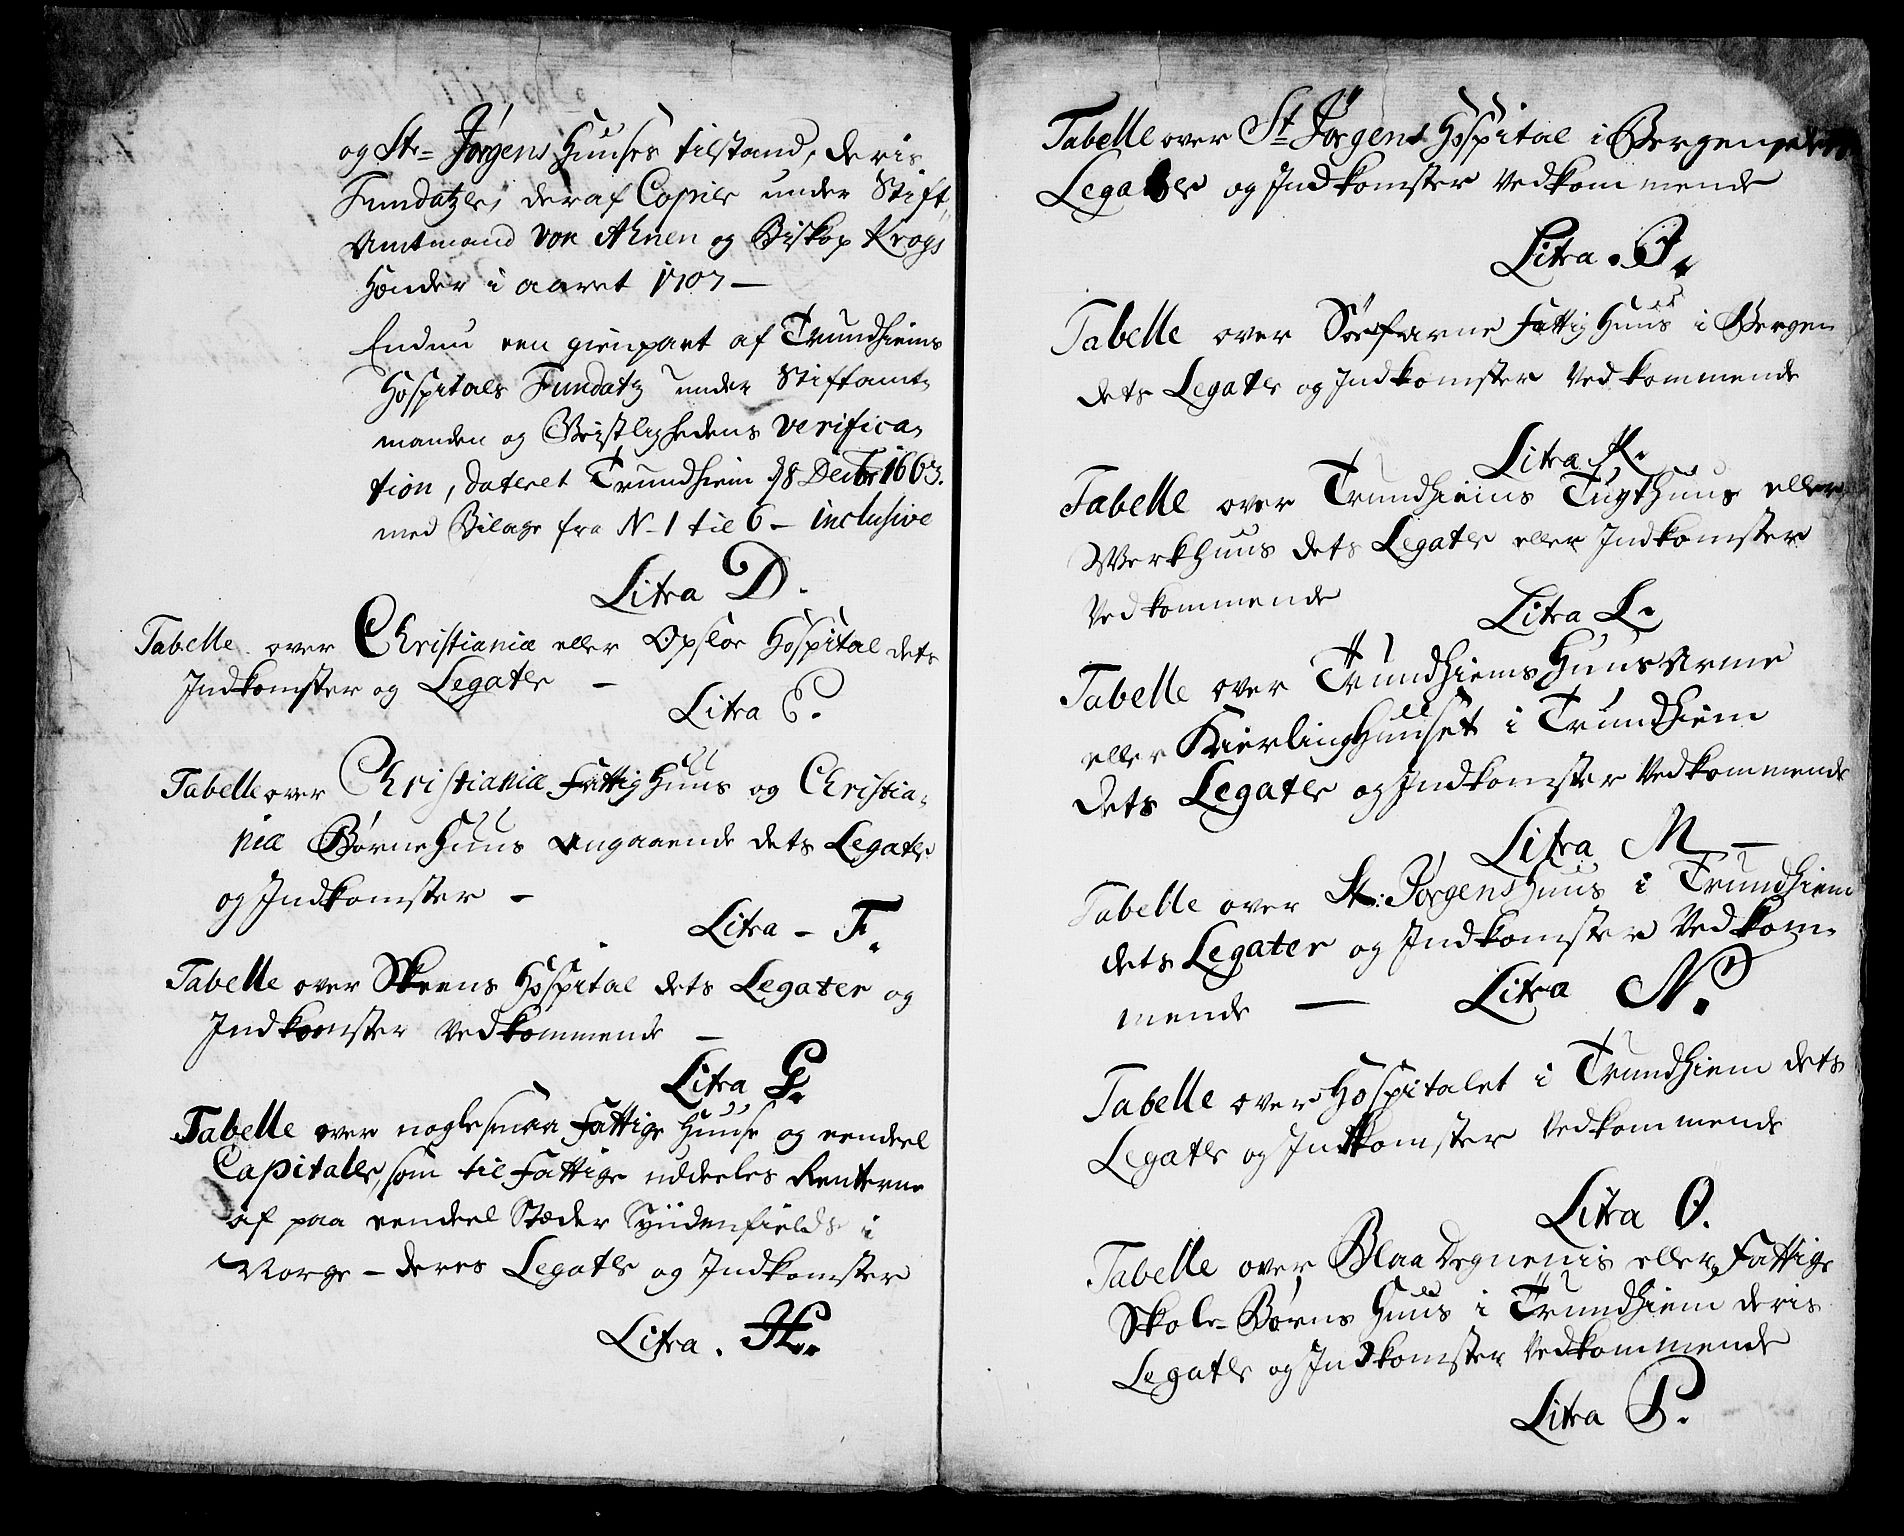 og St= Jørgens Huuses tilstand, deris
Fundatzer, deraf Copier under Stift,
Amtmand von Ahnen og Biskop Krogs
Hænder i aaret 1707 —
Endnu een gienpart af Trundhiems
Hospitals Fundatz under Stiftamt,
manden og Geistlighedens verifica,
tion, dateret Trundhiem 28 Decbr 1663.
med Bilage fra N- 1 til 6 - inclusive
Litra D.
Tabelle over Christiania eller Opsloe Hospital dets
Indkomster og Legater —
Litra E.
Tabelle over Christiania Fattig Huus og Christia,
nia Børnehuus angaaende dets Legater
og Indkomster -
Litra - F.
Tabelle over Skeens Hospital dets Legater og
Indkomster vedkommende —
Litra G.
Tabelle over nogle smaa Fattige Huuse og eendeel
Capitaler, som til Fattige uddeeles Renterne
af paa eendeel Stæder Syndenfields i
Norge - deres Legater og Indkomster
Litra. H.
Tabelle over St Jørgens Hospital i Bergen
Legater og Indkomster Vedkommende
Litra. J.
Tabelle over Søefarne Fattig Huus i Bergen
dets Legater og Indkomster Vedkommende
Litra K.
Tabelle over Trundhiems Tugthuus eller
Werkhuus dets Legater eller Indkomster
Vedkommende
Litra L.
Tabelle over Trundhiems Huusarme
eller Kierlinghuuset i Trundhiem
dets Legater og Indkomster Vedkommende
Litra M —
Tabelle over St: Jørgens Huus i Trundhiem
dets Legater og Indkomster Vedkom-
mende —
Litra N.
Tabelle over Hospitalet i Trundhiem dets
Legater og Indkomster Vedkommende
Litra O.
Tabelle over Blaa Degnenis eller Fattige
Skole-Børns Huus i Trundhiem deris
Legater og Indkomster Vedkommende
Litra P.